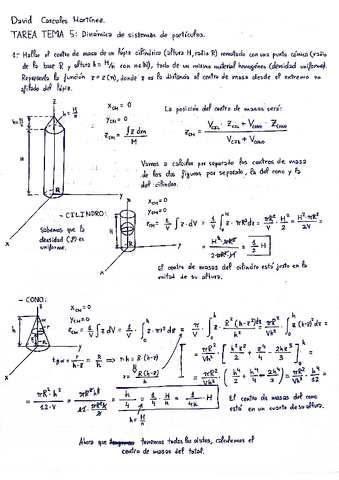 David Cascales Martínez.
TAREA TEMA 5: Dinámica de sistemas de partículas.
1.- Hallar el centro de masa de un lápiz cilíndrico (altura H, radio R) rematado con una punta cónica (radio
de la base R y altura h = H/n con n∈N), todo de un mismo material homogéneo (densidad uniforme).
Representa la función z = z(n), donde z es la distancia al centro de masa desde el extremo no
afilado del lápiz.
X_CM = 0
Y_CM = 0
Z_CM = ∫z dm / M
h = H/n
H
R
x
y
z
La posición del centro de masas será:
Z_CM = (V_CIL · Z_CIL + V_CONO · Z_CONO) / (V_CIL + V_CONO)
Vamos a calcular por separado los centros de masa
de las dos figuras por separado, la del cono y la
del cilindro.
- CILINDRO:
Sabemos que la
densidad (ρ) es
uniforme.
X_CM = 0
Y_CM = 0
Z_CM = 1/V ∫ z · dV = 1/V ∫₀ᴴ z · πR² dz = πR²/V · H²/2 = H² · πR²/2V =
= 1/2 H
El centro de masas del cilindro está justo en la
mitad de su altura.
- CONO:
X_CM = 0
Y_CM = 0
Z_CM = 1/V ∫ z dV = 1/V · ∫₀ʰ z · πr² dz = π/V · ∫₀ʰ z · R²(h-z)²/h² dz = πR²/Vh² · ∫₀ʰ z(h-z)² dz =
r/(h-z) = R/h → r·h = R·(h-z)
r = R·(h-z)/h
= πR²/Vh² · [h²z²/2 + z⁴/4 - 2hz³/3]₀ʰ =
= πR²/Vh² · (h⁴/2 + h⁴/4 - 2h⁴/3) = πR²/Vh² · h⁴/12 =
= πR² · h²/12·V = h/4 = 1/4 · H/n = 1/4n · H
h = H/n
El centro de masas del cono
está en un cuarto de su altura.
Ahora que tenemos todos los datos, calculemos el
centro de masas del total.